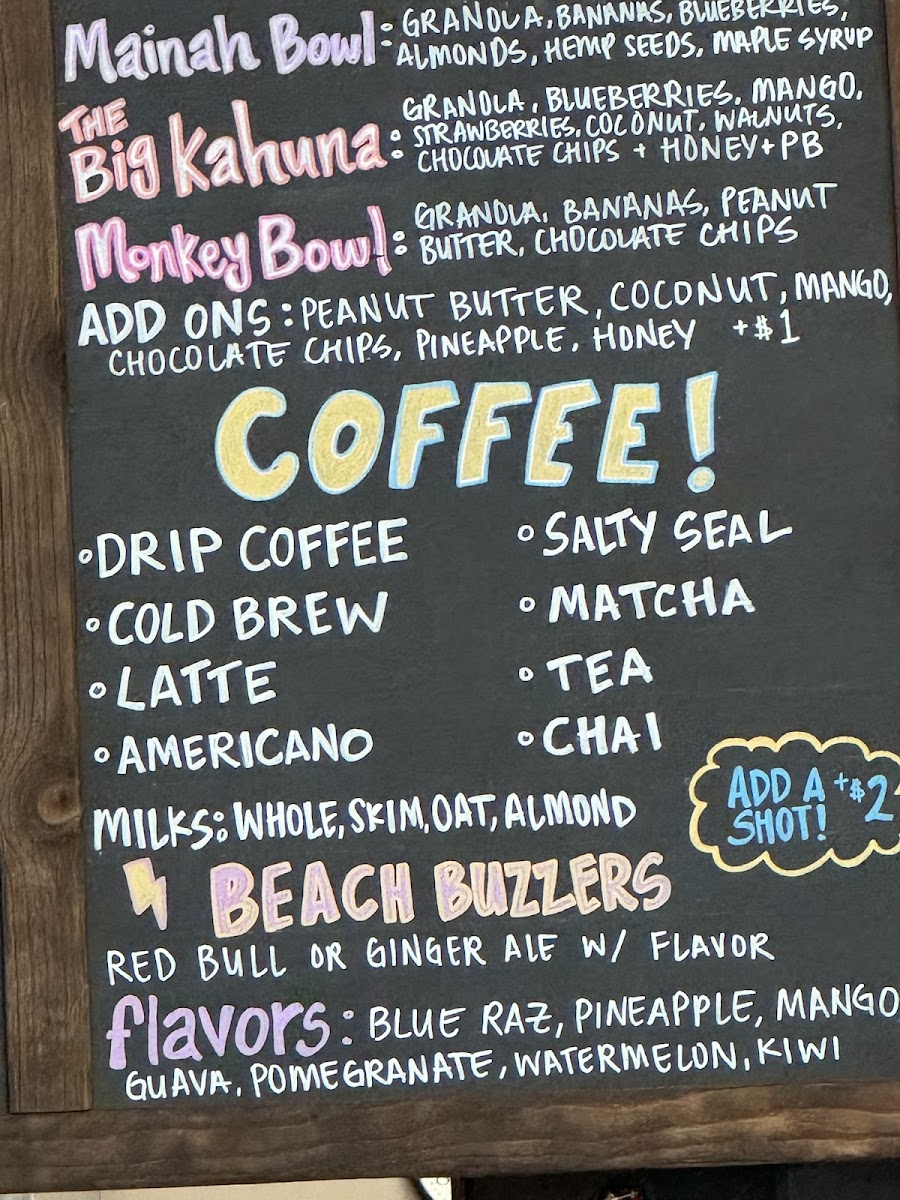 Mainah Bowl: GRANOLA, BANANAS, BLUEBERRIES,
ALMONDS, HEMP SEEDS, MAPLE SYRUP
THE Big Kahuna: GRANOLA, BLUEBERRIES, MANGO,
STRAWBERRIES, COCONUT, WALNUTS,
CHOCOLATE CHIPS + HONEY + PB
Monkey Bowl: GRANOLA, BANANAS, PEANUT
BUTTER, CHOCOLATE CHIPS
ADD ONS: PEANUT BUTTER, COCONUT, MANGO,
CHOCOLATE CHIPS, PINEAPPLE, HONEY +$1
COFFEE!
◦DRIP COFFEE
◦COLD BREW
◦LATTE
◦AMERICANO
◦SALTY SEAL
◦MATCHA
◦TEA
◦CHAI
MILKS: WHOLE, SKIM, OAT, ALMOND
ADD A +$2
SHOT!
BEACH BUZZERS
RED BULL OR GINGER ALE W/ FLAVOR
flavors: BLUE RAZ, PINEAPPLE, MANGO
GUAVA, POMEGRANATE, WATERMELON, KIWI